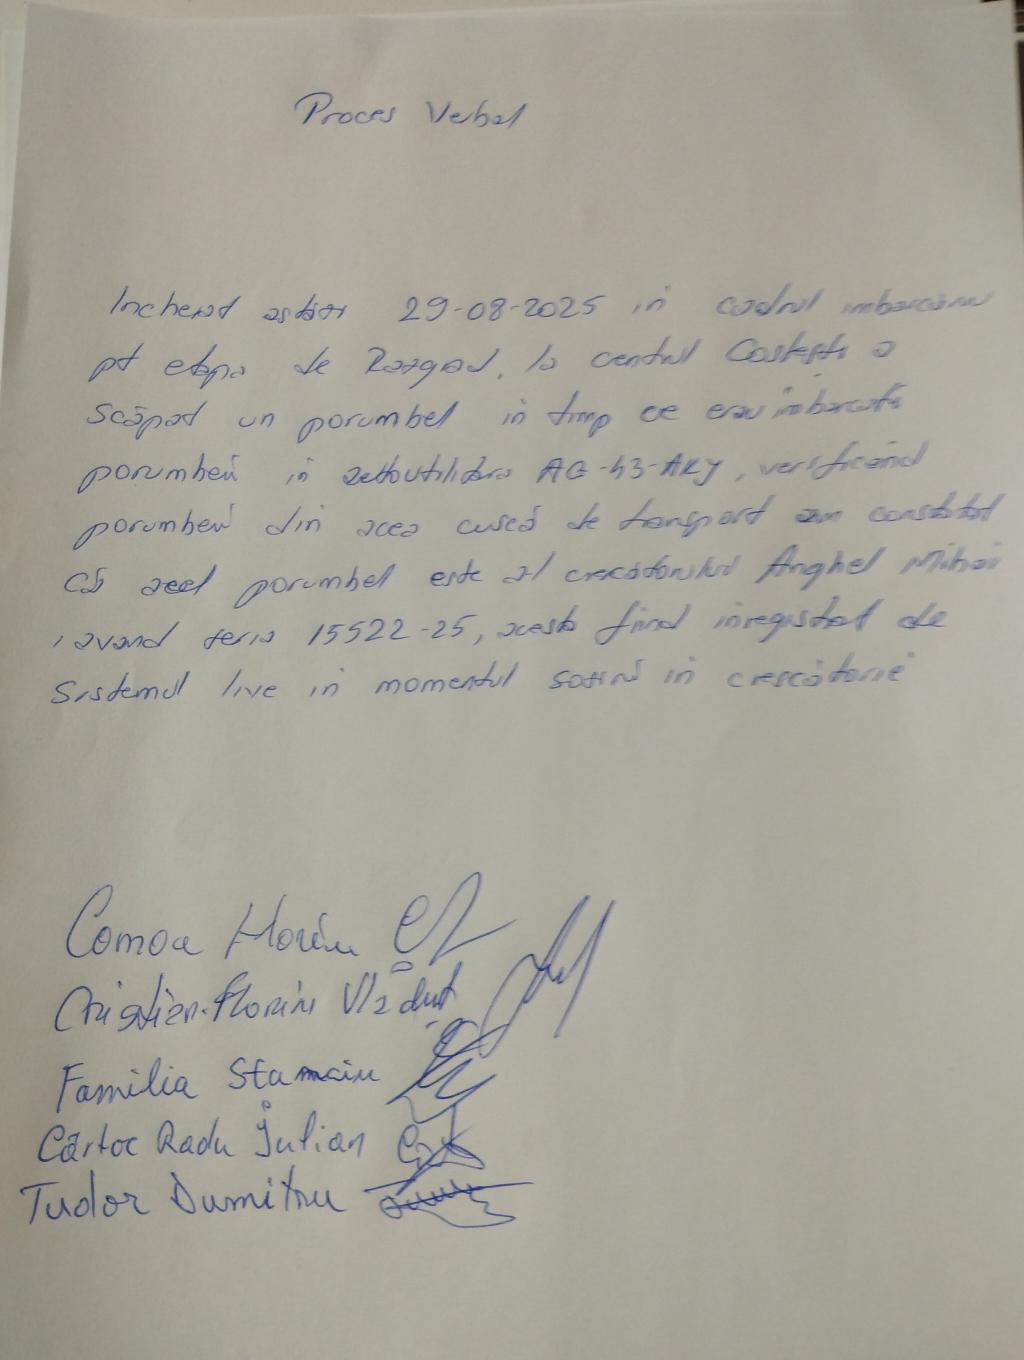 Proces Verbal
Incheiat astăzi 29-08-2025 in cadrul imbarcării
pt etapa de Razgrad, la centrul Costești a
Scăpat un porumbel in timp ce erau imbarcati
porumbeii in autoutilitara AG-43-AKY, verificând
porumbeii din acea cușcă de transport am constatat
că acel porumbel este al crescătorului Anghel Mihai
, avand seria 15522-25, acesta fiind inregistrat de
Sistemul live in momentul sosirii in crescătorie
Comoa Florin
Cristian-Florin Vlăduț
Familia Stamain
Cârtoc Radu Iulian
Tudor Dumitru